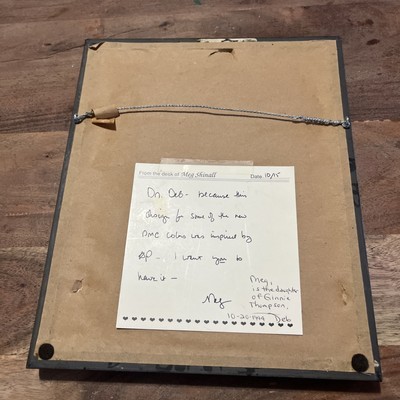 From the desk of Meg Shinall Date: 10/15
Deb - because this
design for some of the new
DMC colors was inspired by
I want you to
have it -
Meg
Meg,
is the daughter
of Ginnie
Thompson.
10-20-1994 Deb